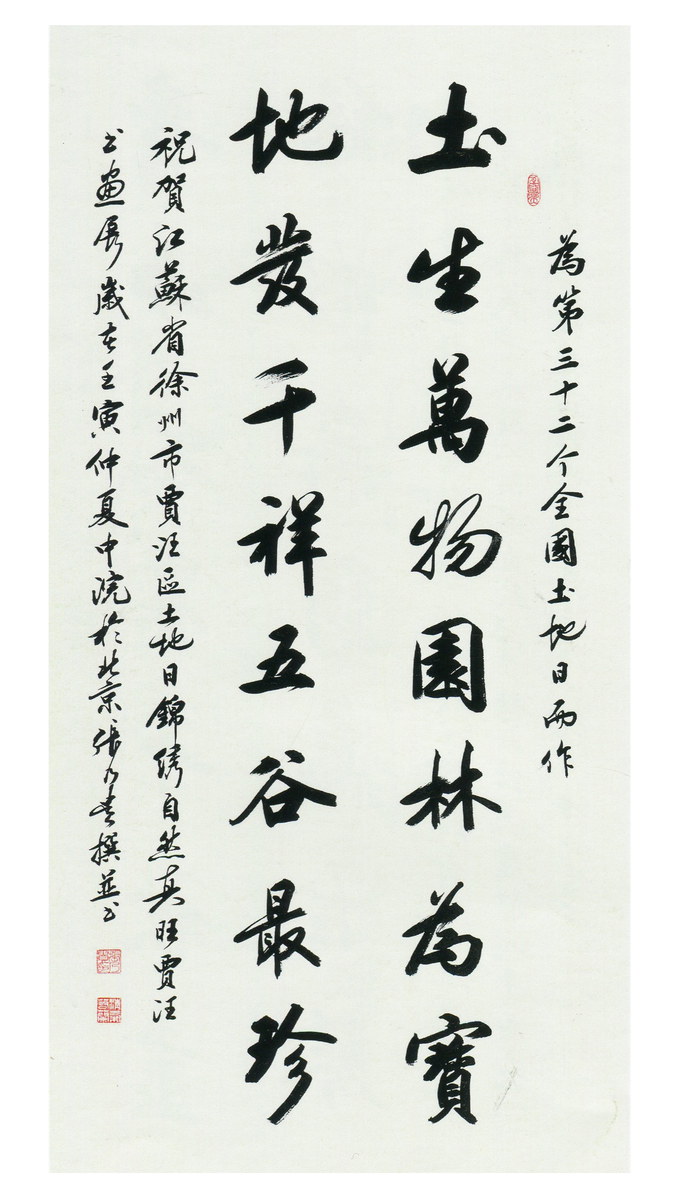 為第三十二个全國土地日而作
土生萬物園林為寶
地發千祥五谷最珍
祝賀江蘇省徐州市賈汪區土地日錦綉自然真旺賈汪
书畫展歲在壬寅仲夏中浣於北京張乃貴撰並书